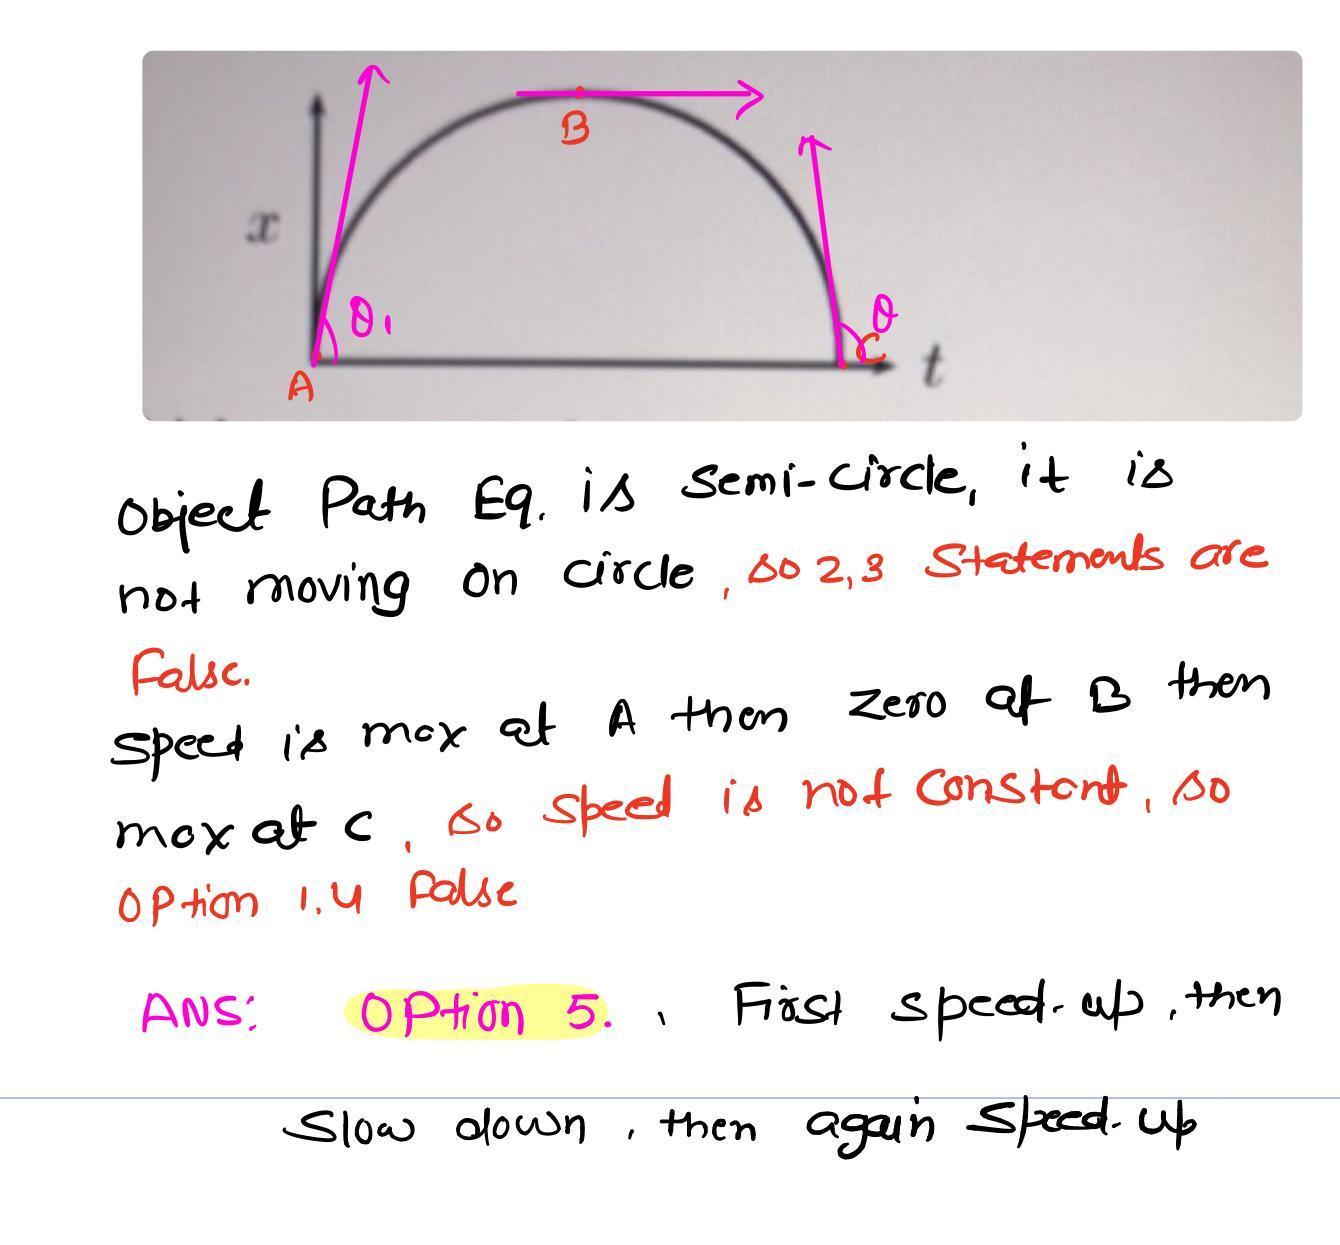 B
x
θ₁
θ
C
t
A
Object Path Eq. is Semi-circle, it is
not moving on circle, so 2,3 Statements are
False.
Speed is max at A then zero at B then
max at C, so speed is not constant, so
option 1,4 false
ANS: Option 5. , First speed-up, then
Slow down, then again Speed-up